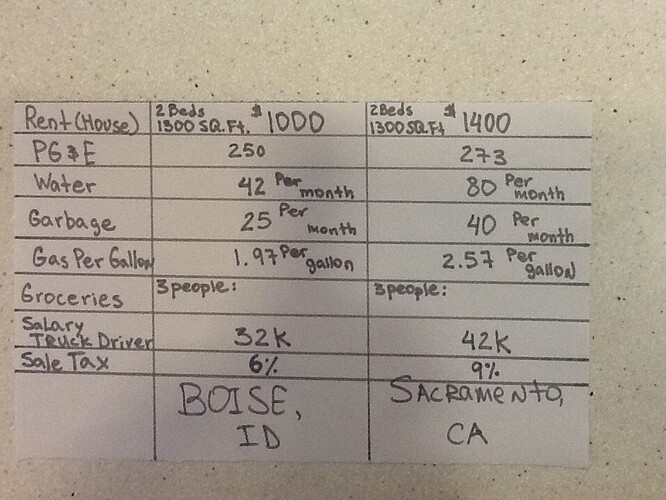 Rent (House) 2 Beds 1300 SQ.Ft. $1000 2Beds 1300SQ.Ft $1400
PG&E 250 273
Water 42 Per month 80 Per month
Garbage 25 Per month 40 Per month
Gas Per Gallon 1.97 Per gallon 2.57 Per gallon
Groceries 3 people: 3 people:
Salary Truck Driver 32K 42K
Sale Tax 6% 9%
BOISE, ID Sacramento, CA